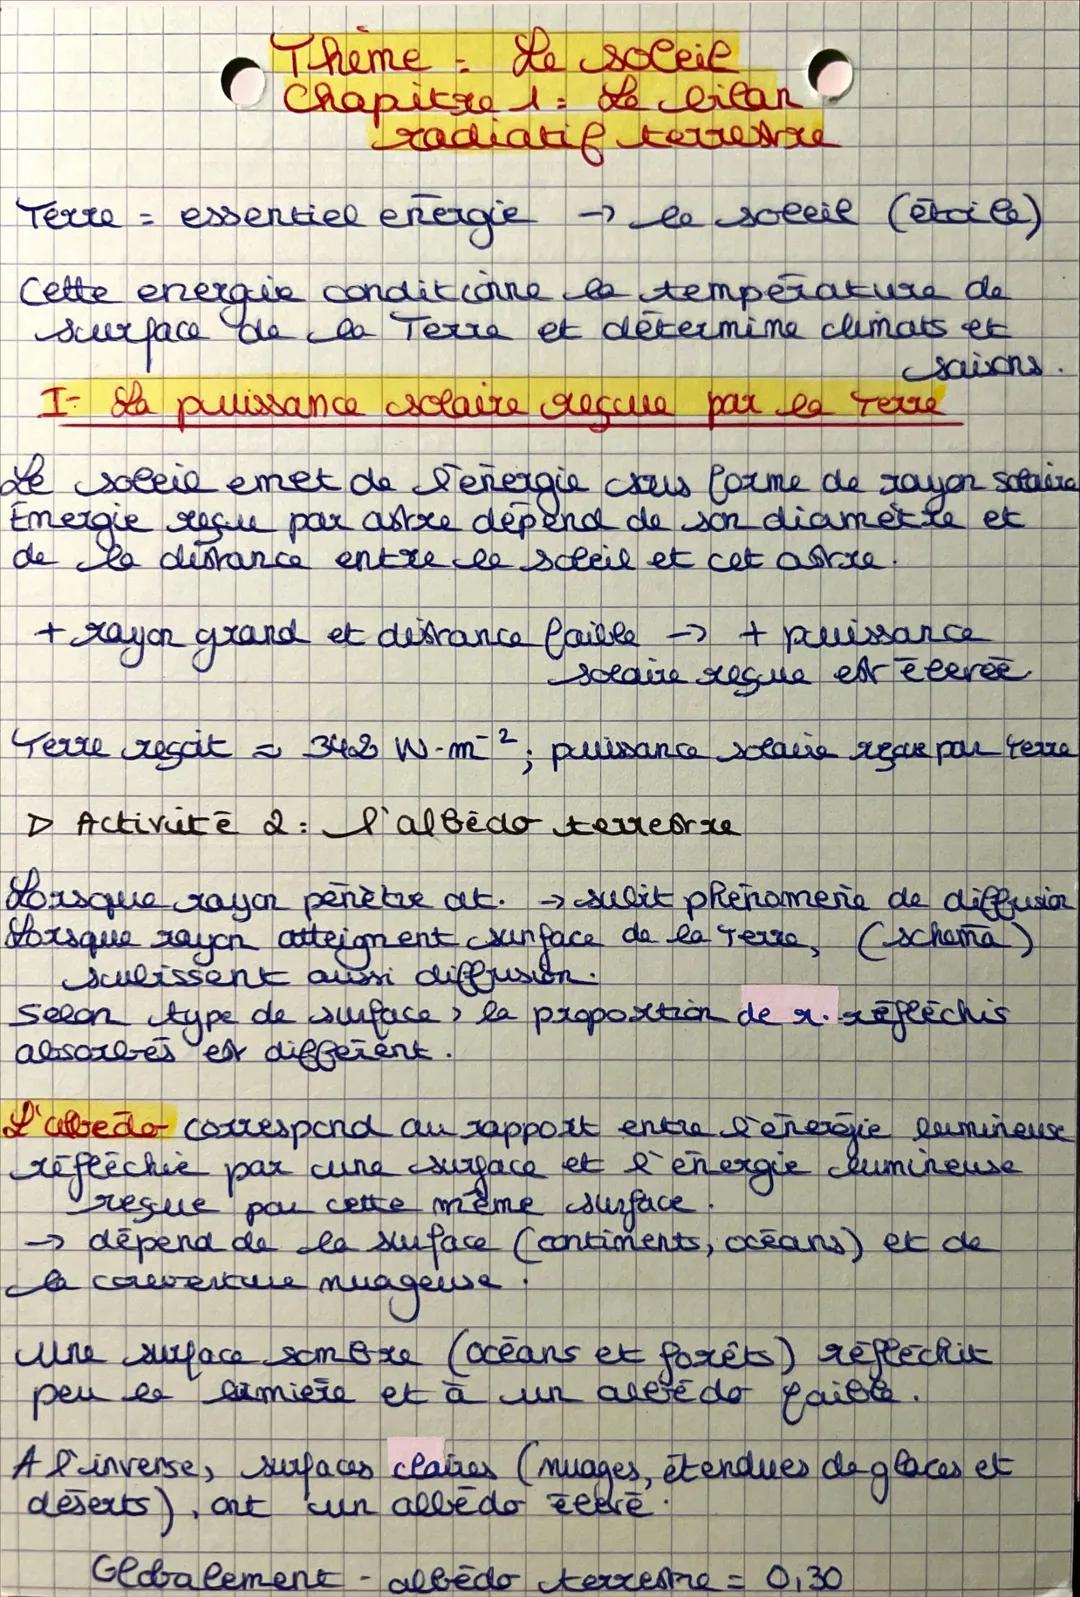 Thème : Le soleil
Chapitre 1 : Le bilan
radiatif terrestre
Terre = essentiel énergie → le soleil (étoile)
Cette energie conditionne la température de
surface de la Terre et détermine climats et
saisons.
I- La puissance solaire reçue par la Terre
Le soleil emet de l'énergie sous forme de rayon solaire
Énergie reçu par astre dépend de son diamètre et
de la distance entre le soleil et cet astre.
+ rayon grand et distance faible → + puissance
solaire reçue est élevée
Terre reçoit ≈ 342 W·m⁻² ; puissance solaire reçue par terre
▷ Activité 2 : l'albédo terrestre
Lorsque rayon pénètre at. → subit phénomène de diffusion
Lorsque rayon atteignent surface de la Terre, (schéma)
subissent aussi diffusion.
Selon type de surface, la proportion de r. réfléchis
absorbés est différent.
L'albédo correspond au rapport entre l'énergie lumineuse
réfléchie par une surface et l'énergie lumineuse
reçue par cette même surface.
→ dépend de la surface (continents, océans) et de
la couverture nuageuse.
Une surface sombre (océans et forêts) réfléchit
peu la lumière et à un albédo faible.
A l'inverse, surfaces claires (nuages, étendues de glaces et
déserts), ont un albédo élevé.
Globalement - albédo terrestre = 0,30